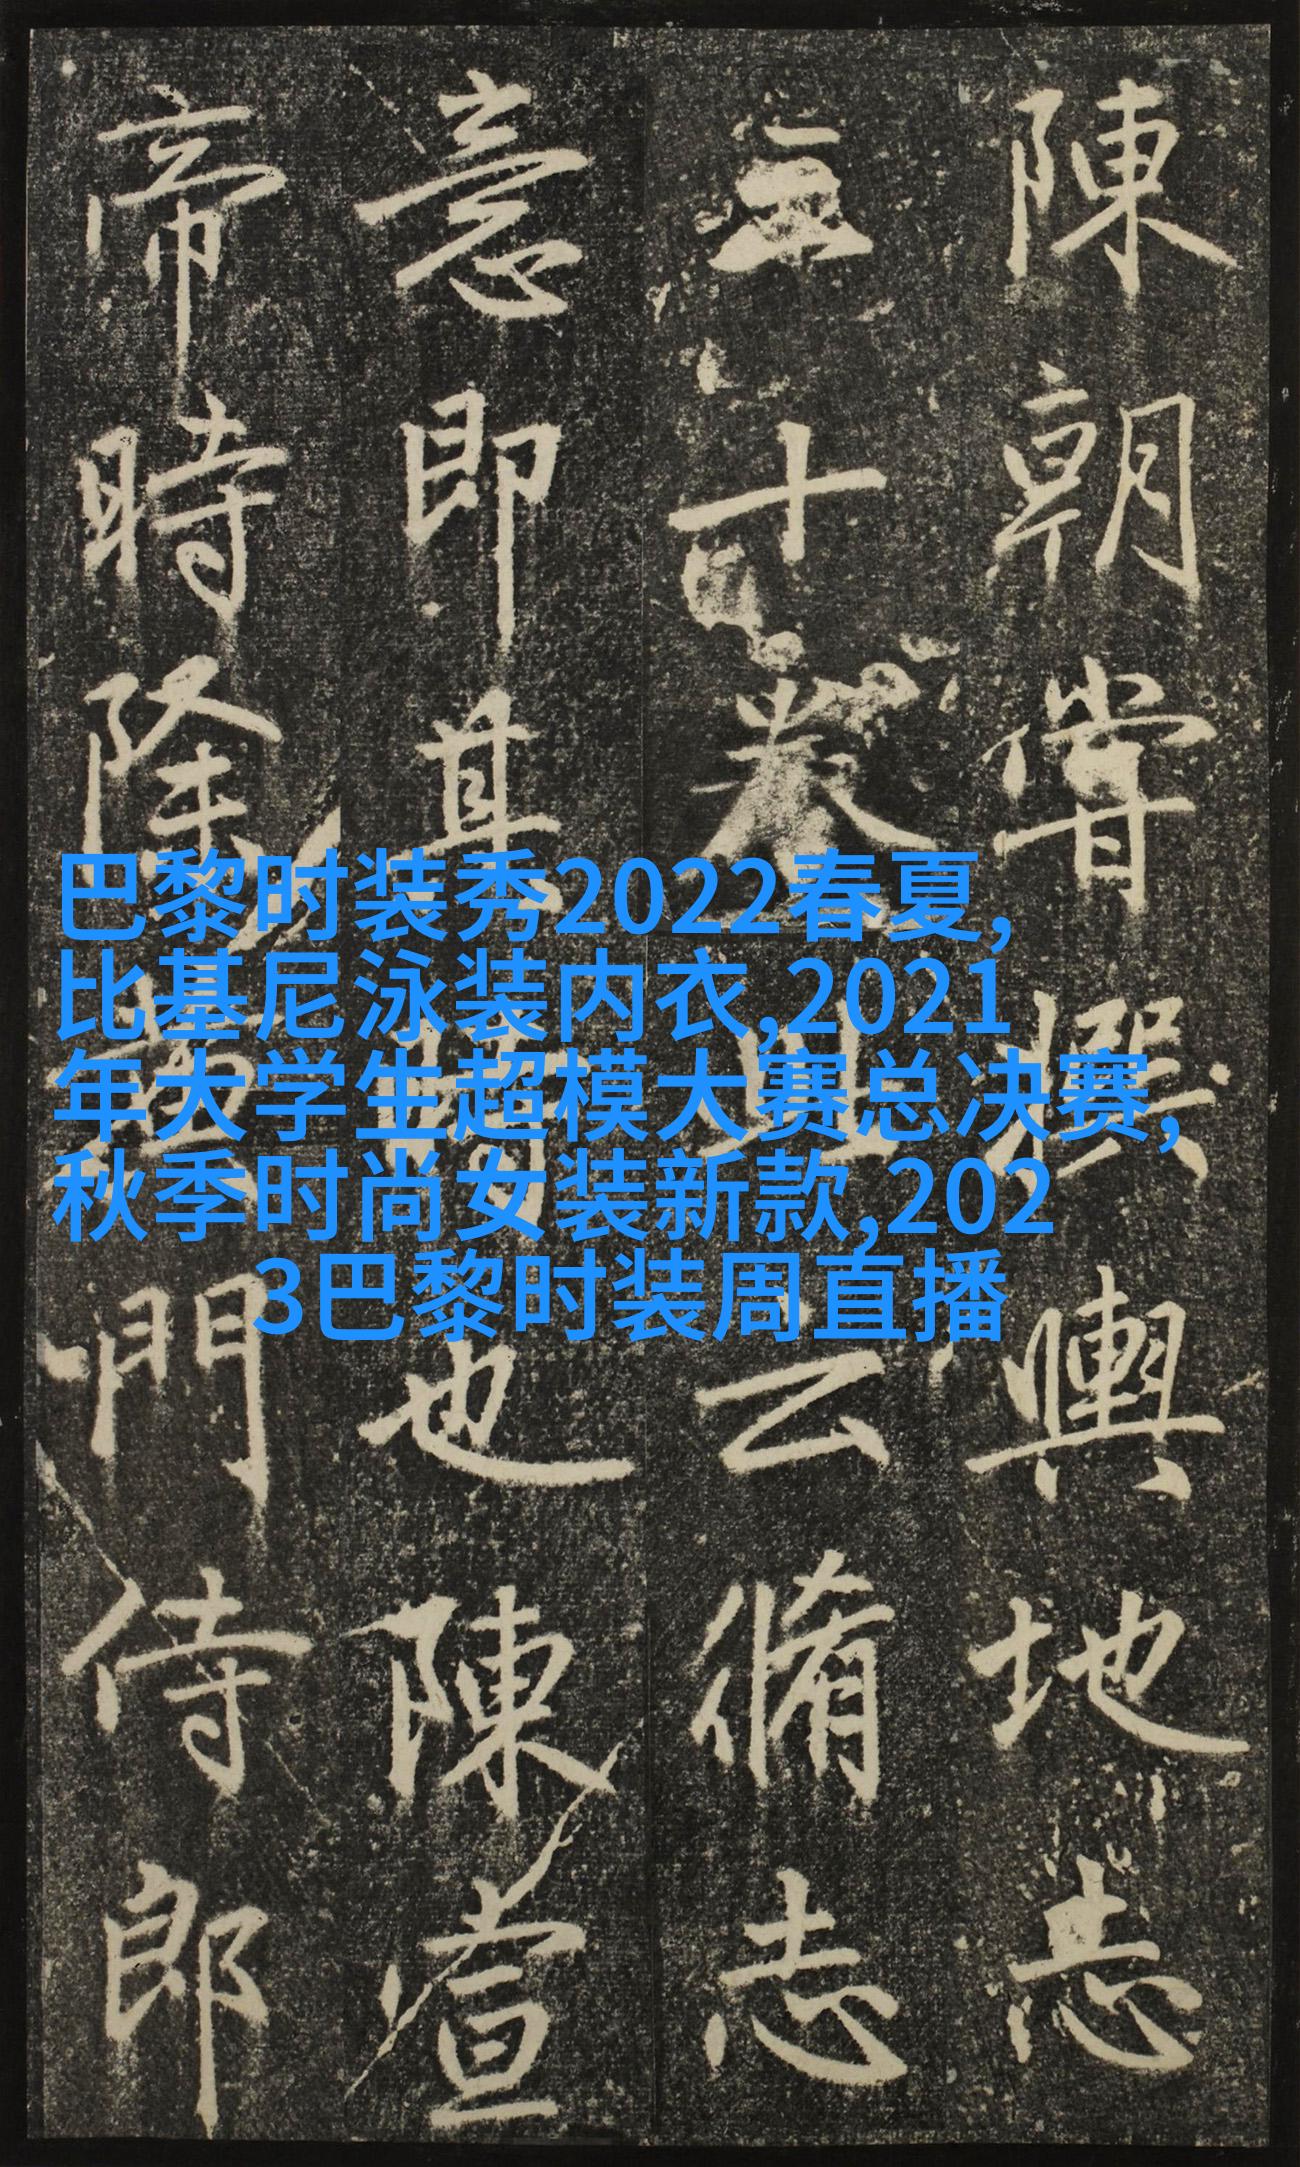 陳朝嘗撰輿地志
三十卷此云脩志
意即其時也陳宣
帝時除黃門侍郎
巴黎时装秀2022春夏,
比基尼泳装内衣,2021
年大学生超模大赛总决赛,
秋季时尚女装新款,202
3巴黎时装周直播